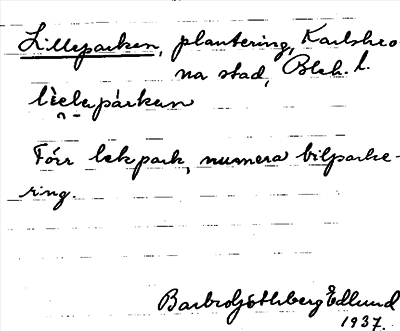 Lilleparken, plantering, Karlskro-
na stad, Blek. l.
lìlepárken
Förr lekpark, numera bilparke-
ring.
Barbro Göthberg Edlund
1937.